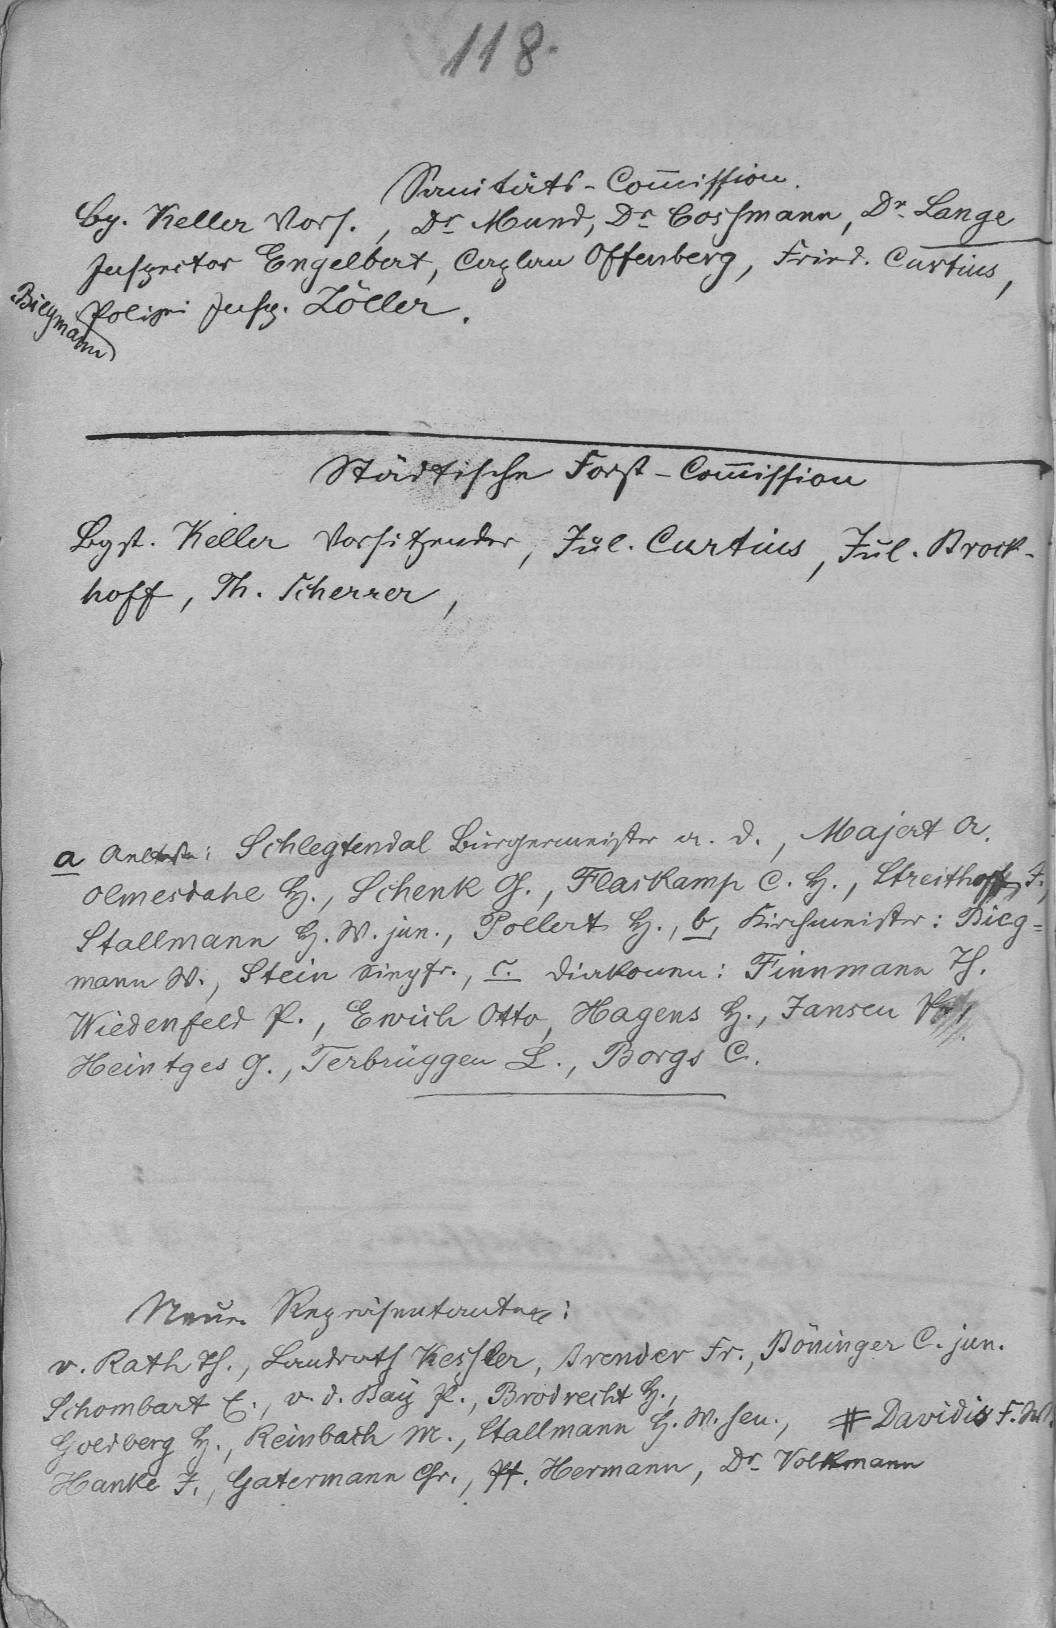 118.
Sanitäts-Com̅ission.
Bg. Keller Vors., Dr. Mund, Dr. Cossmann, Dr. Lange
Inspector Engelbert, Caplan Offenberg, Fried. Curtius,
Biegmann
Polizei Insp. Zöller.
Städtische Forst-Com̅ission
Bgst. Keller Vorsitzender, Jul. Curtius, Jul. Brock-
hoff, Th. Scherrer,
a Aelteste: Schlegtendal Bürgermeister a. D., Majert A.
Olmesdahl H., Schenk G., Flaskamp C. H., Streithoff F.,
Stallmann H. W. jun., Pollert H., b, Kirchmeister: Bieg=
mann W., Stein Siegfr., c. Diakonen: Finnmann Th.
Wiedenfeld P., Ewich Otto, Hagens H., Jansen
Heintges G., Terbrüggen L., Borgs C.
Neue Repräsentanten:
v. Rath Th., Landrath Kessler, Arender Fr., Böninger C. jun.
Schombart E., v. d. Bay P., Brodrecht H.,
Goldberg H., Reinbach M., Stallmann H. W. sen., # Davidis F. W.
Hanke F., Gatermann Chr., Pf. Hermann, Dr. Volkmann